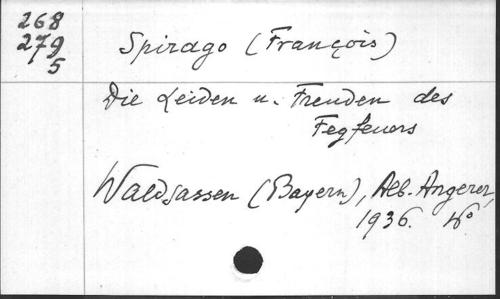 268
279
5
Spirago (François)
Die Leiden u. Freuden des
Fegfeuers
Waldsassen (Bayern), Alb. Angerer,
1936. 4o